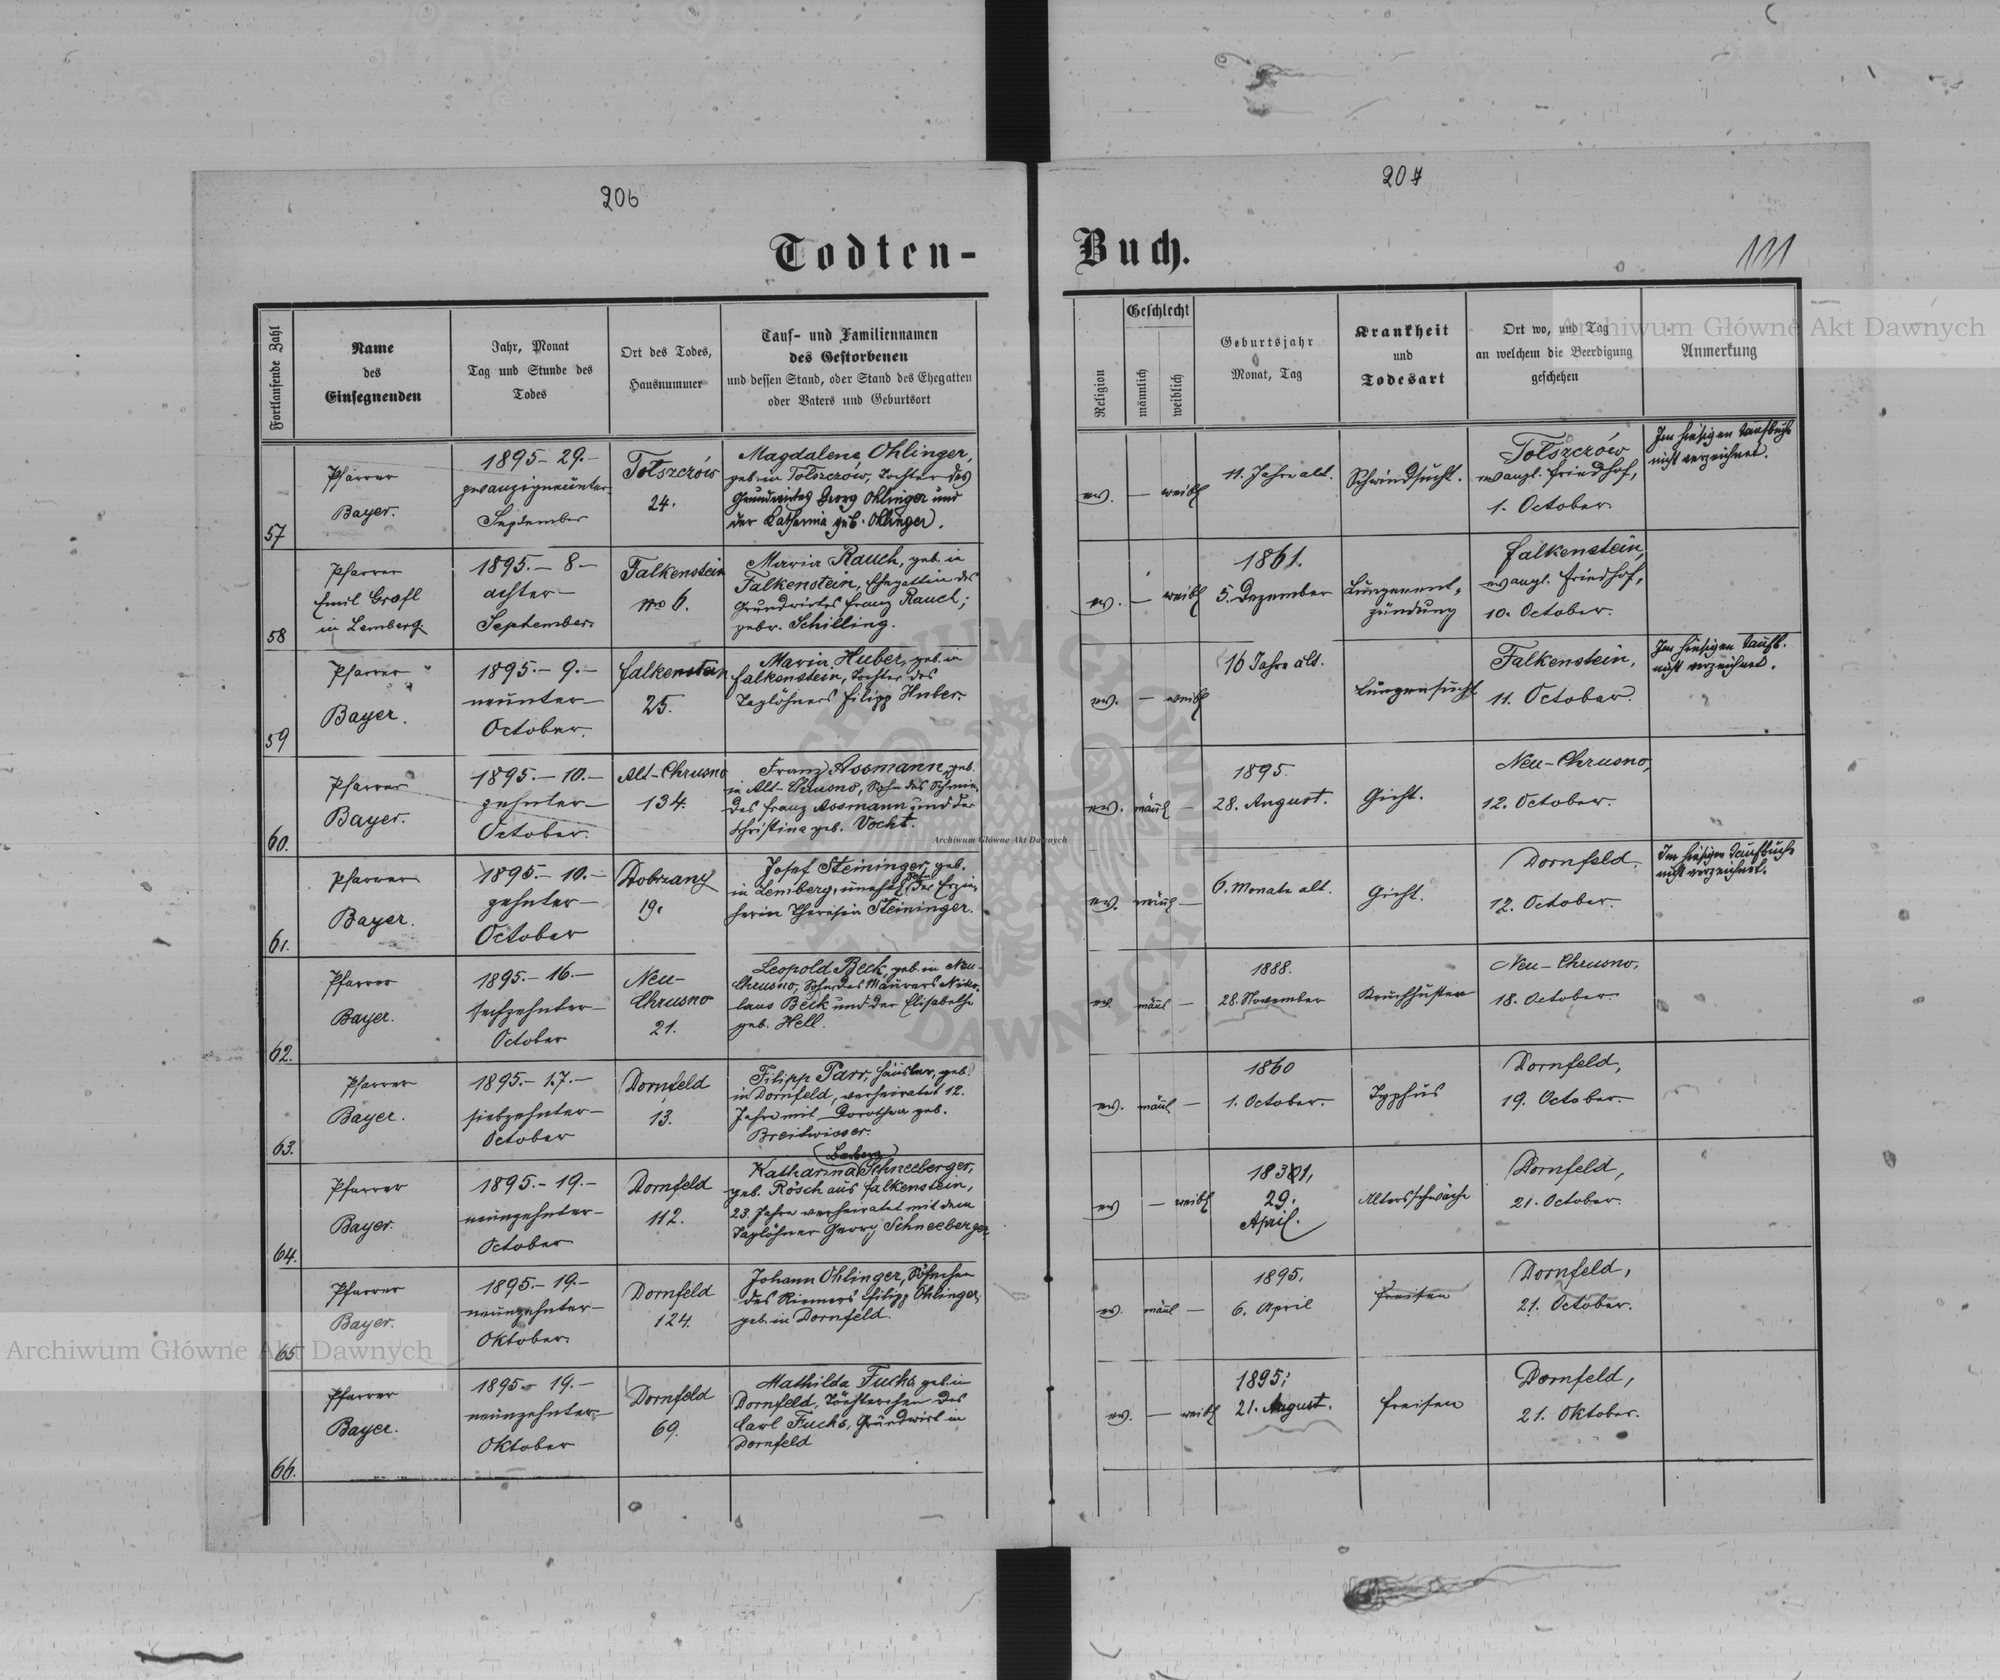 206
207
Todten-
Buch.
111
Fortlaufende Zahl
Name
des
Einsegnenden
Jahr, Monat
Tag und Stunde des
Todes
Ort des Todes,
Hausnummer
Tauf- und Familiennamen
des Gestorbenen
und dessen Stand, oder Stand des Ehegatten
oder Vaters und Geburtsort
Religion
Geschlecht
männlich
weiblich
Geburtsjahr
Monat, Tag
Krankheit
und
Todesart
Ort wo, und Tag
an welchem die Beerdigung
geschehen
Anmerkung
57
Pfarrer
Bayer.
1895 - 29. -
zwanzigneunter
September
Tolszczów
24.
Magdalena Ohlinger,
geb. in Tolszczów, Tochter des
Grundwirtes Georg Ohlinger und
der Katharina geb. Ohlinger.
ev. — weibl
11. Jahre alt.
Schwindsucht.
Tolszczów
evangl. Friedhof,
1. October.
Im hiesigen Taufbuche
nicht verzeichnet.
58
Pfarrer
Emil Grafl
in Lemberg.
1895. - 8 -
achter -
September.
Falkenstein
Nro 6.
Maria Rauch, geb. in
Falkenstein, Ehegattin des
Grundwirtes Franz Rauch;
gebor. Schilling.
ev. — weibl
1861.
5. Dezember
Lungenent-
zündung
Falkenstein,
evangl. Friedhof,
10. October.
59
Pfarrer
Bayer.
1895. - 9. -
neunter -
October.
Falkenstein
25.
Maria Huber, geb. in
Falkenstein, Tochter des
Taglöhners Filipp Huber.
ev. — weibl
16 Jahre alt.
Lungensucht
Falkenstein,
11. October.
Im hiesigen Taufb.
nicht verzeichnet.
60.
Pfarrer
Bayer.
1895. - 10. -
zehnter -
October.
Alt-Chrusno
134.
Franz Assmann, geb.
in Alt-Chrusno, Sohn des Schmie-
des Franz Assmann und der
Christina geb. Vocht.
ev. männl —
1895.
28. August.
Gicht.
Neu-Chrusno,
12. October.
61.
Pfarrer
Bayer.
1895. - 10. -
zehnter -
October
Dobrzany
19.
Josef Steininger, geb.
in Lemberg, unehel. der Erzie-
herin Theresia Steininger.
ev. männl —
6. Monate alt.
Gicht.
Dornfeld.
12. October.
Im hiesigen Taufbuche
nicht verzeichnet.
62.
Pfarrer
Bayer.
1895. - 16. -
sechzehnter -
October
Neu-
Chrusno
21.
Leopold Beck, geb. in Neu-
Chrusno, Sohn des Maurers Niko-
laus Beck und der Elisabeth
geb. Hell.
ev. männl —
1888.
28. November
Keuchhusten
Neu-Chrusno,
18. October.
63.
Pfarrer
Bayer.
1895. - 17. -
siebzehnter -
October
Dornfeld
13.
Filipp Parr, Häusler, geb.
in Dornfeld, verheiratet 12.
Jahre mit Dorothea geb.
Breitwieser.
ev. männl —
1860
1. October.
Typhus
Dornfeld,
19. October.
64.
Pfarrer
Bayer.
1895. - 19. -
neunzehnter -
October
Dornfeld
112.
(Barbara)
Katharina Schneeberger,
geb. Rösch aus Falkenstein,
23 Jahre verheiratet mit dem
Taglöhner Georg Schneeberger
ev — weibl
1831,
29.
April.
Altersschwäche
Dornfeld,
21. October.
65
Pfarrer
Bayer.
1895. - 19. -
neunzehnter -
Oktober.
Dornfeld
124.
Johann Ohlinger, Söhnchen
des Riemers Filipp Ohlinger,
geb. in Dornfeld.
ev. männl —
1895.
6. April
Fraisen
Dornfeld,
21. October.
66.
Pfarrer
Bayer.
1895 - 19. -
neunzehnter -
Oktober
Dornfeld
69.
Mathilda Fuchs geb. in
Dornfeld, Töchterchen des
Carl Fuchs, Grundwirt in
Dornfeld
ev. — weibl
1895;
21. August.
Fraisen
Dornfeld,
21. Oktober.
Archiwum Główne Akt Dawnych
Archiwum Główne Akt Dawnych
Archiwum Główne Akt Dawnych
ARCHIWUM GŁÓWNE AKT DAWNYCH